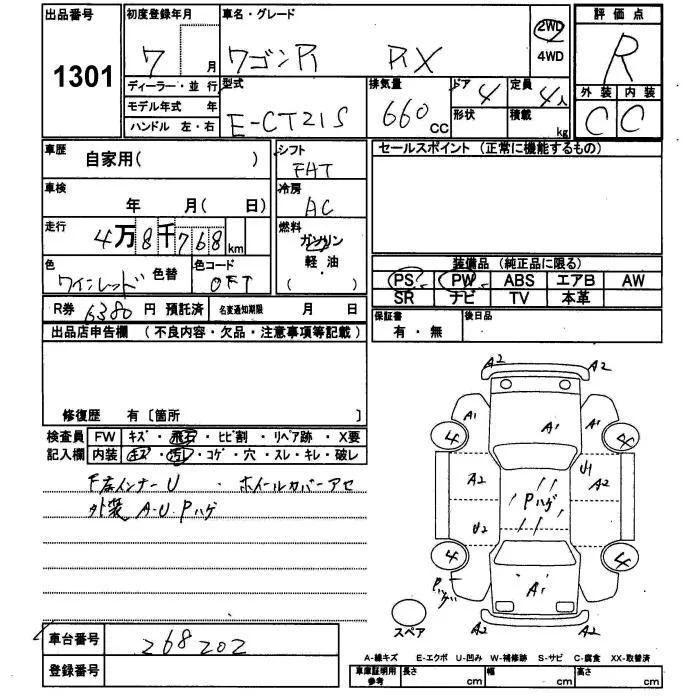 出品番号
1301
初度登録年月
7 月
車名・グレード
ワゴンR RX
2WD
4WD
評価点
R
外装 内装
C C
ディーラー・並行
モデル年式 年
ハンドル 左・右
型式
E-CT21S
排気量
660 CC
ドア 4
形状
定員 4人
積載 kg
車歴
自家用( )
シフト
FAT
セールスポイント (正常に機能するもの)
車検
年 月( 日)
冷房
AC
走行
4万8千768 km
燃料
ガソリン
軽油・
( )
色
ワインレッド 色替
色コード
0FT
装備品 (純正品に限る)
PS PW ABS エアB AW
SR ナビ TV 本革
R券 6380 円 預託済 名変通知期限 月 日
保証書
有・無
後日品
出品店申告欄 (不良内容・欠品・注意事項等記載)
修復歴 有〔箇所 〕
検査員 FW キズ・飛石・ヒビ割・リペア跡・X要
記入欄 内装 キズ・汚レ・コゲ・穴・スレ・キレ・破レ
インナーU ・ ホイールカバーアセ
外装 A-U Pハゲ
A2 A2
A1 A1 A1
4 4
A2 U1 A2
Pハゲ
U2
4 4
Pハゲ A1
A2 A2
スペア
車台番号 268202
登録番号
A-線キズ E-エクボ U-凹み W-補修跡 S-サビ C-腐食 XX-取替済
車庫証明用
参考
長さ cm 幅 cm 高さ cm